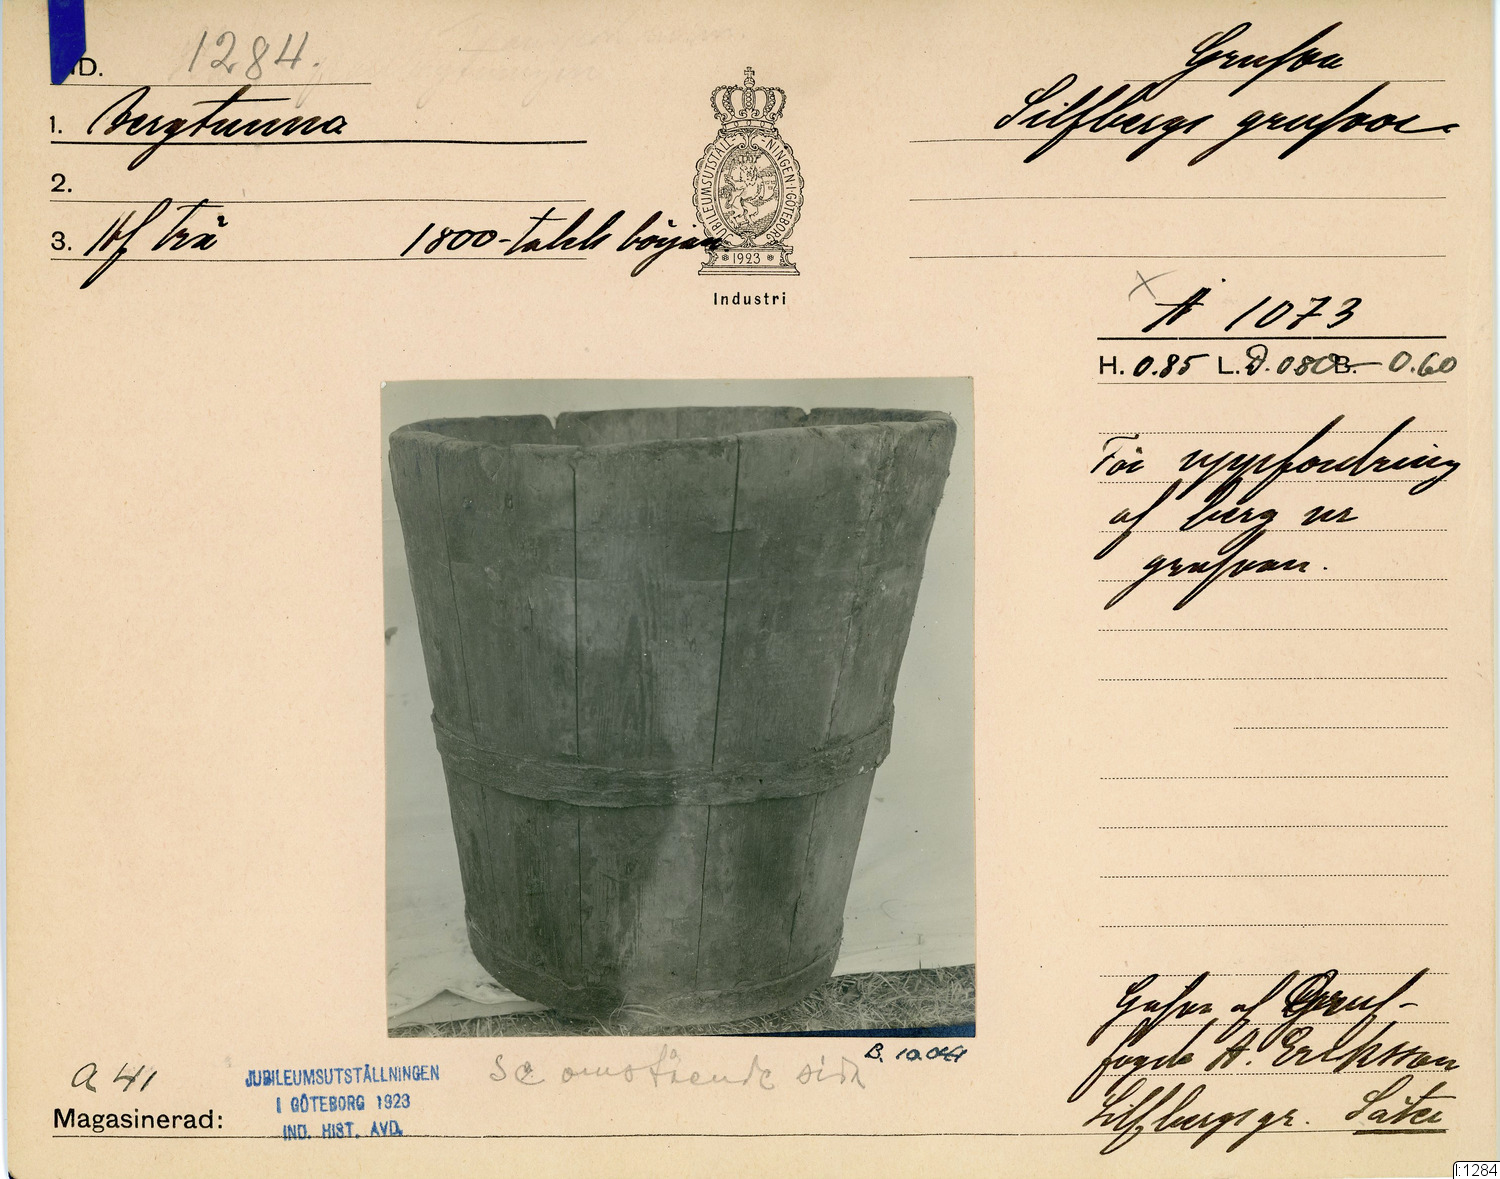 ND. 1284.
1. Bergtunna
2.
3. Af trä 1800-talets början
JUBILEUMSUTSTÄLLNINGEN I GÖTEBORG
1923
Industri
Grufva
Silfbergs grufvor
x
A 1073
H. 0.85 L. D. 080 B. - 0.60
För uppfordring
af berg ur
grufvan.
Gåfva af Gruf-
fogde A. Eriksson
Silfbergsgr. Säter
B. 10.041
Se omstående sida
a 41
JUBILEUMSUTSTÄLLNINGEN
I GÖTEBORG 1923
IND. HIST. AVD.
Magasinerad:
I:1284